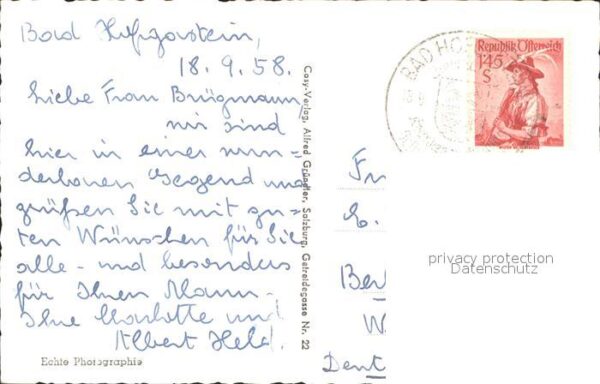 Bad Hofgastein,
18. 9. 58.
Liebe Frau Brügmann
wir sind
hier in einer wun-
derbaren Gegend und
grüßen Sie mit gu-
ten Wünschen für Sie
alle - und besonders
für Ihren Mann -
Ihre Charlotte und
Albert Held.
Echte Photographie
Cosy-Verlag, Alfred Gründler, Salzburg, Getreidegasse Nr. 22
BAD HO
Republik Österreich
1.45
S
Fr
Ber
W
Deut
privacy protection
Datenschutz